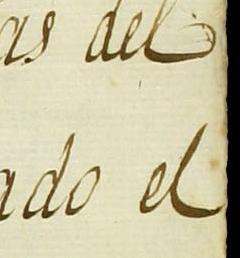 as del
ado el